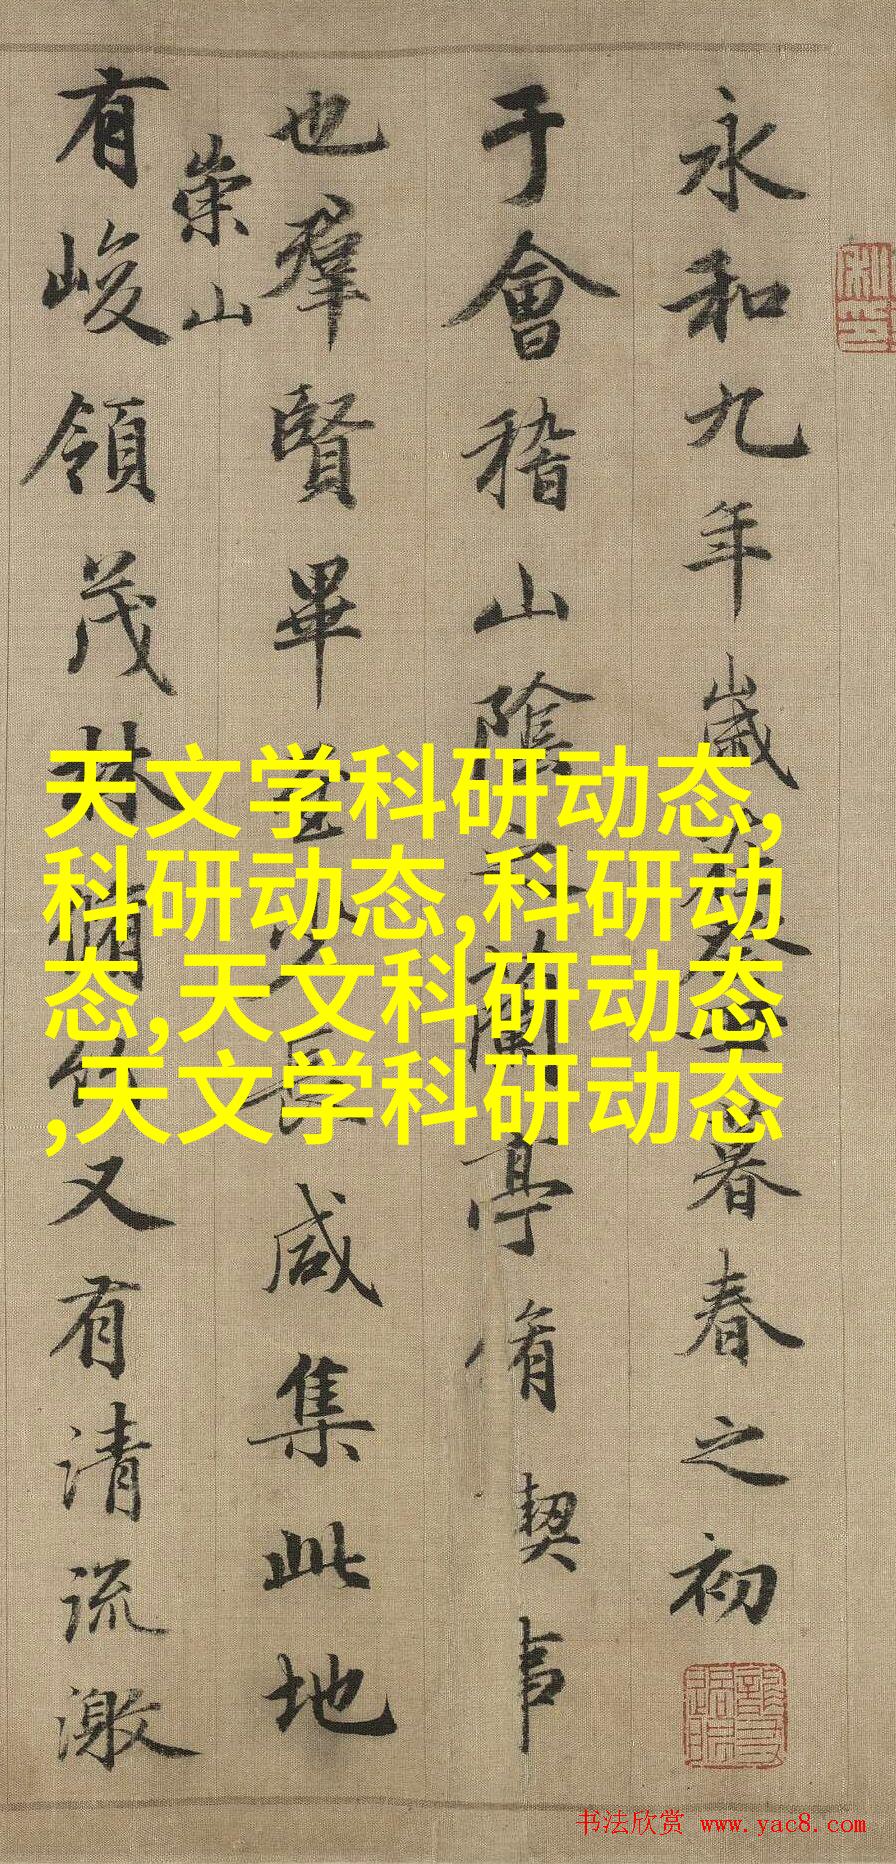 永和九年歲在癸丑暮春之初
于會稽山陰之蘭亭脩契事
也羣賢畢至少長咸集此地
崇山
有峻領茂林脩竹又有清流激
天文学科研动态,
科研动态,科研动
态,天文科研动态
,天文学科研动态
书法欣赏 www.yac8.com